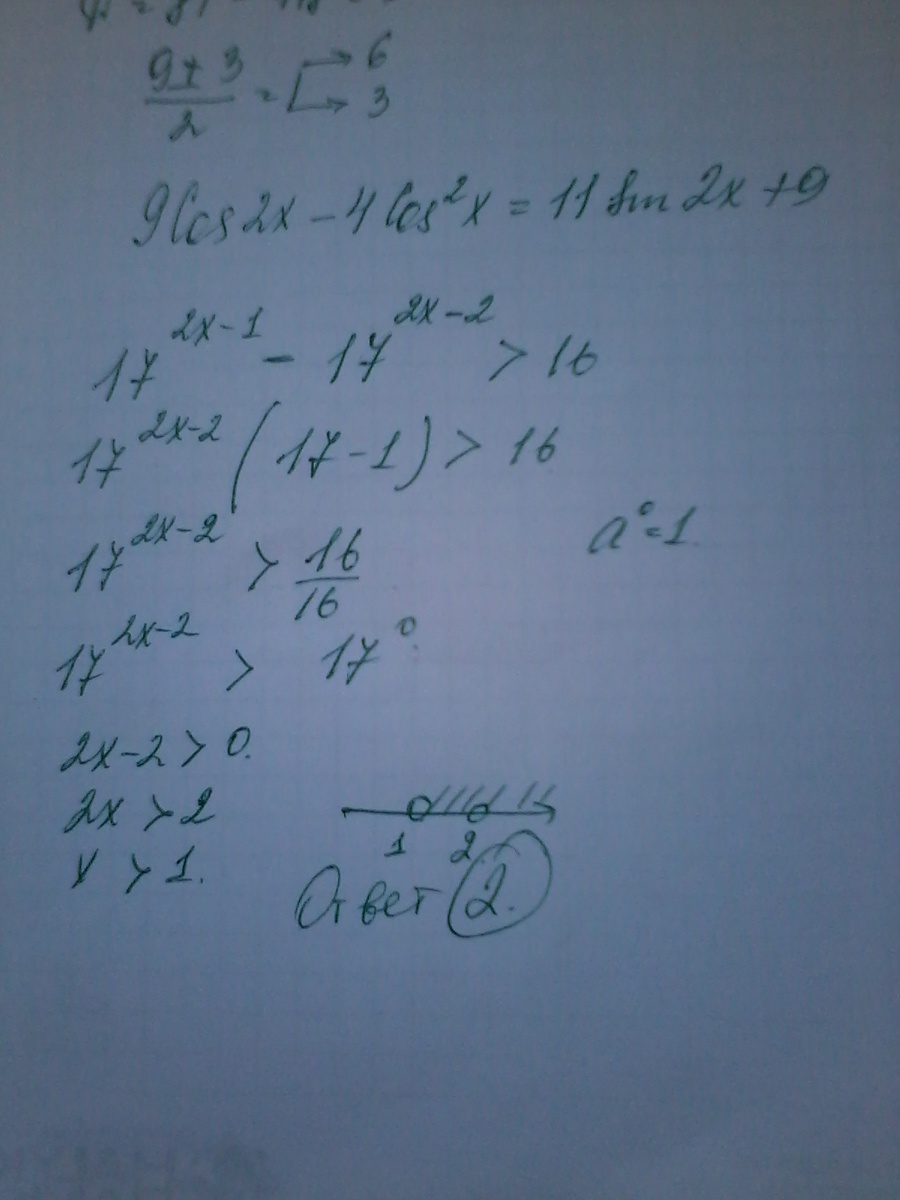 9±3/2 = 6
3
9cos2x - 4cos²x = 11 sin 2x + 9
17^(2x-1) - 17^(2x-2) > 16
17^(2x-2) (17-1) > 16
17^(2x-2) > 16/16
a⁰=1.
17^(2x-2) > 17⁰.
2x-2 > 0.
2x > 2
x > 1.
1 2
Ответ 2.